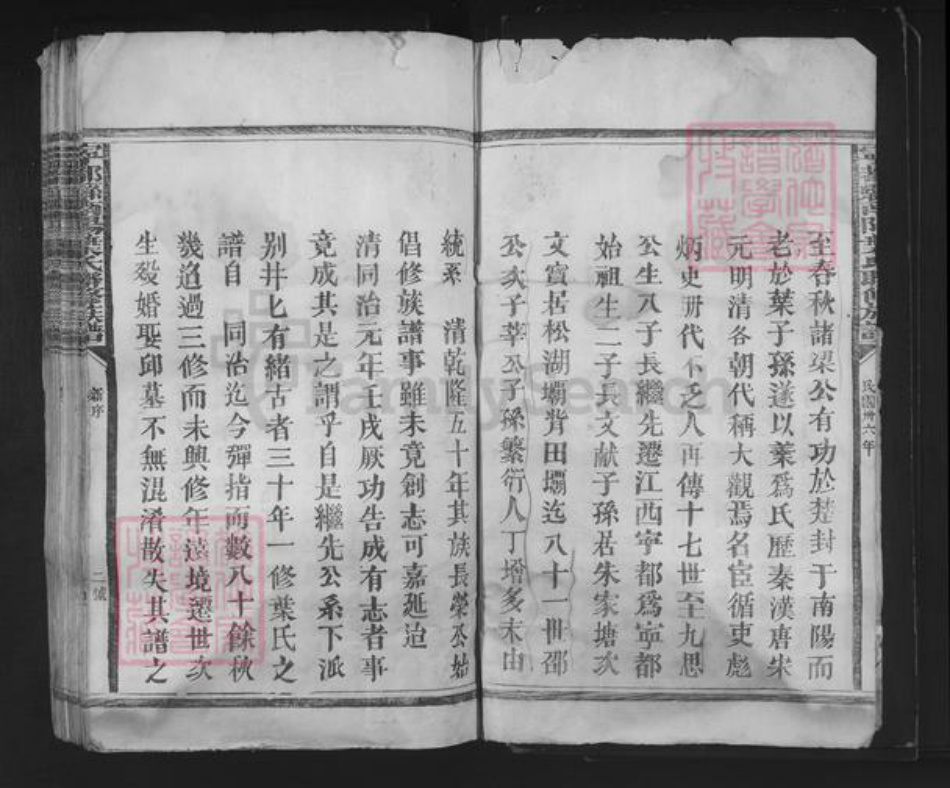 民國卅六年
至春秋諸梁公有功於楚封于南陽而
老於葉子孫遂以葉爲氏歷秦漢唐宋
元明清各朝代稱大觀焉名宦循吏彪
炳史冊代不乏人再傳十七世至九思
公生八子長繼先遷江西宁都爲宁都
始祖生二子長文献子孫居朱家塘次
文寳居松湖壩背田壩迄八十一世邵
公次子莘公子孫繁衍人丁增多末由
統系 清乾隆五十年其族長榮公始
倡修族譜事雖未竟創志可嘉延迨
清同治元年壬戌厥功告成有志者事
竟成其是之謂乎自是繼先公系下派
别井匕有緒古者三十年一修葉氏之
譜自 同治迄今彈指而數八十餘秋
㡬迨過三修而未興修年遠境遷世次
生殁婚娶邱墓不無混淆散失其譜之
新序
二號
FamilySearch